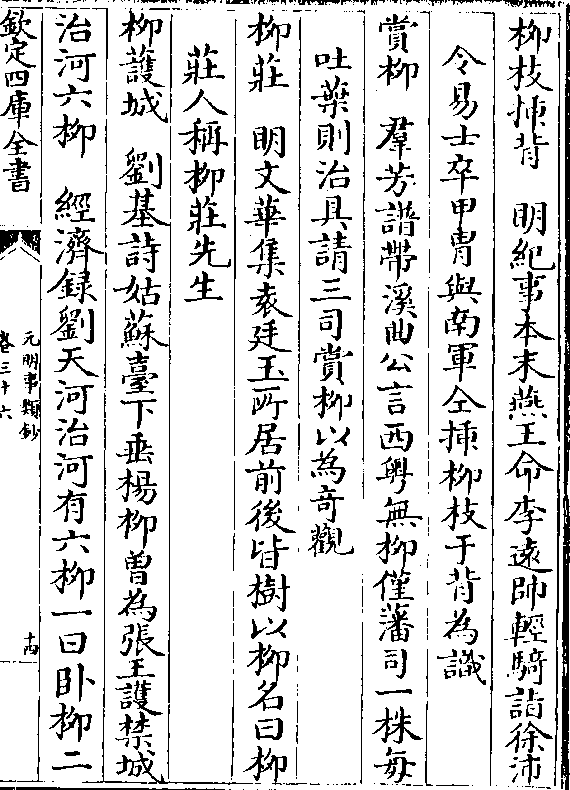 柳枝揷背　明紀事本末燕王命李遠帥輕騎詣徐沛
令易士卒甲胄與南軍仝揷柳枝于背為識
賞柳　羣芳譜帶溪曲公言西粤無柳僅藩司一株每
吐葉則治具請三司賞柳以為竒觀
柳莊　明文華集袁廷玉所居前後皆樹以柳名曰柳
莊人稱柳莊先生
柳護城　劉基詩姑蘇臺下垂楊柳曾為張王護禁城
治河六柳　經濟録劉天河治河有六柳一曰卧柳二
欽定四庫全書
元明事類鈔
卷三十六
十四